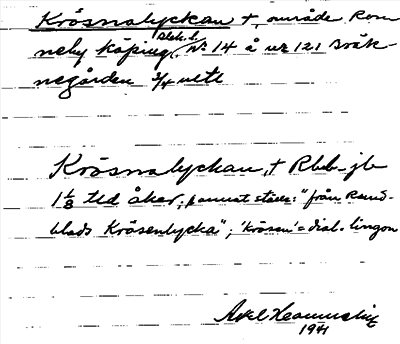 Krösnalyckan †, område, Ron
neby köping, Blek. l.
nr 14 å nr 121 Bräk-
negården 3/4 mtl
Krösnalyckan, † Rbb-jb
1 1/8 tld åker, å annat ställe: "från Rand-
blads Krösenlycka"; 'krösen' = dial. lingon
Axel
1941